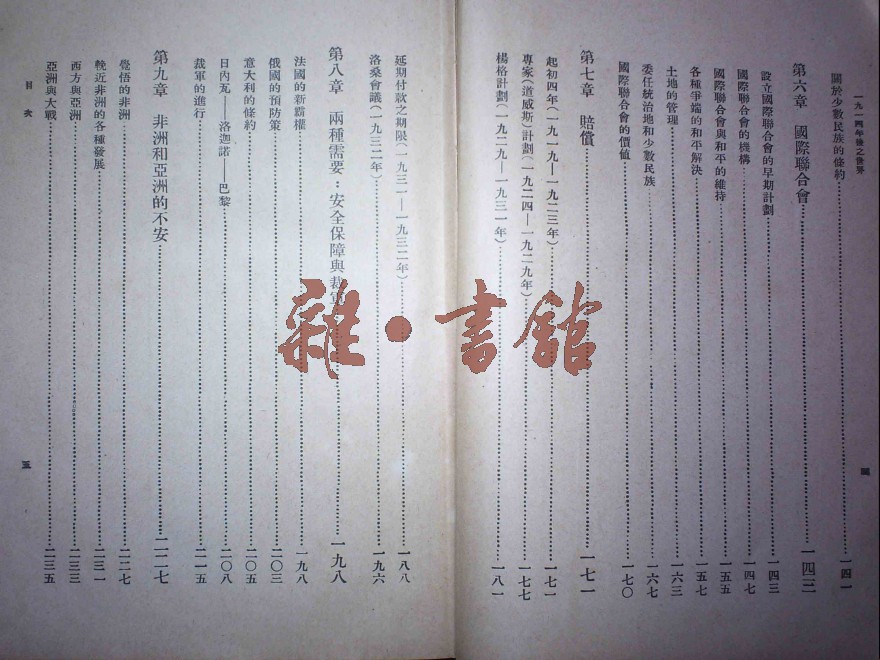 一九一四年後之世界
關於少數民族的條約……一四一
第六章　國際聯合會……一四三
設立國際聯合會的早期計劃……一四三
國際聯合會的機構……一四七
國際聯合會與和平的維持……一五五
各種爭端的和平解決……一五七
土地的管理……一六三
委任統治地和少數民族……一六七
國際聯合會的價値……一七〇
第七章　賠償……一七一
起初四年（一九一九—一九二三年）……一七一
專家（道威斯）計劃（一九二四—一九二九年）……一七七
楊格計劃（一九二九—一九三一年）……一八一
四
延期付款之期限（一九三一—一九三二年）……一八八
洛桑會議（一九三二年）……一九六
第八章　兩種需要：安全保障與裁軍……一九八
法國的新霸權……一九八
俄國的預防策……二〇三
意大利的條約……二〇五
日內瓦——洛迦諾——巴黎……二〇八
裁軍的進行……二一五
第九章　非洲和亞洲的不安……二二七
覺悟的非洲……二二七
輓近非洲的各種發展……二三一
西方與亞洲……二三三
亞洲與大戰……二三五
目次
五
雜·書館